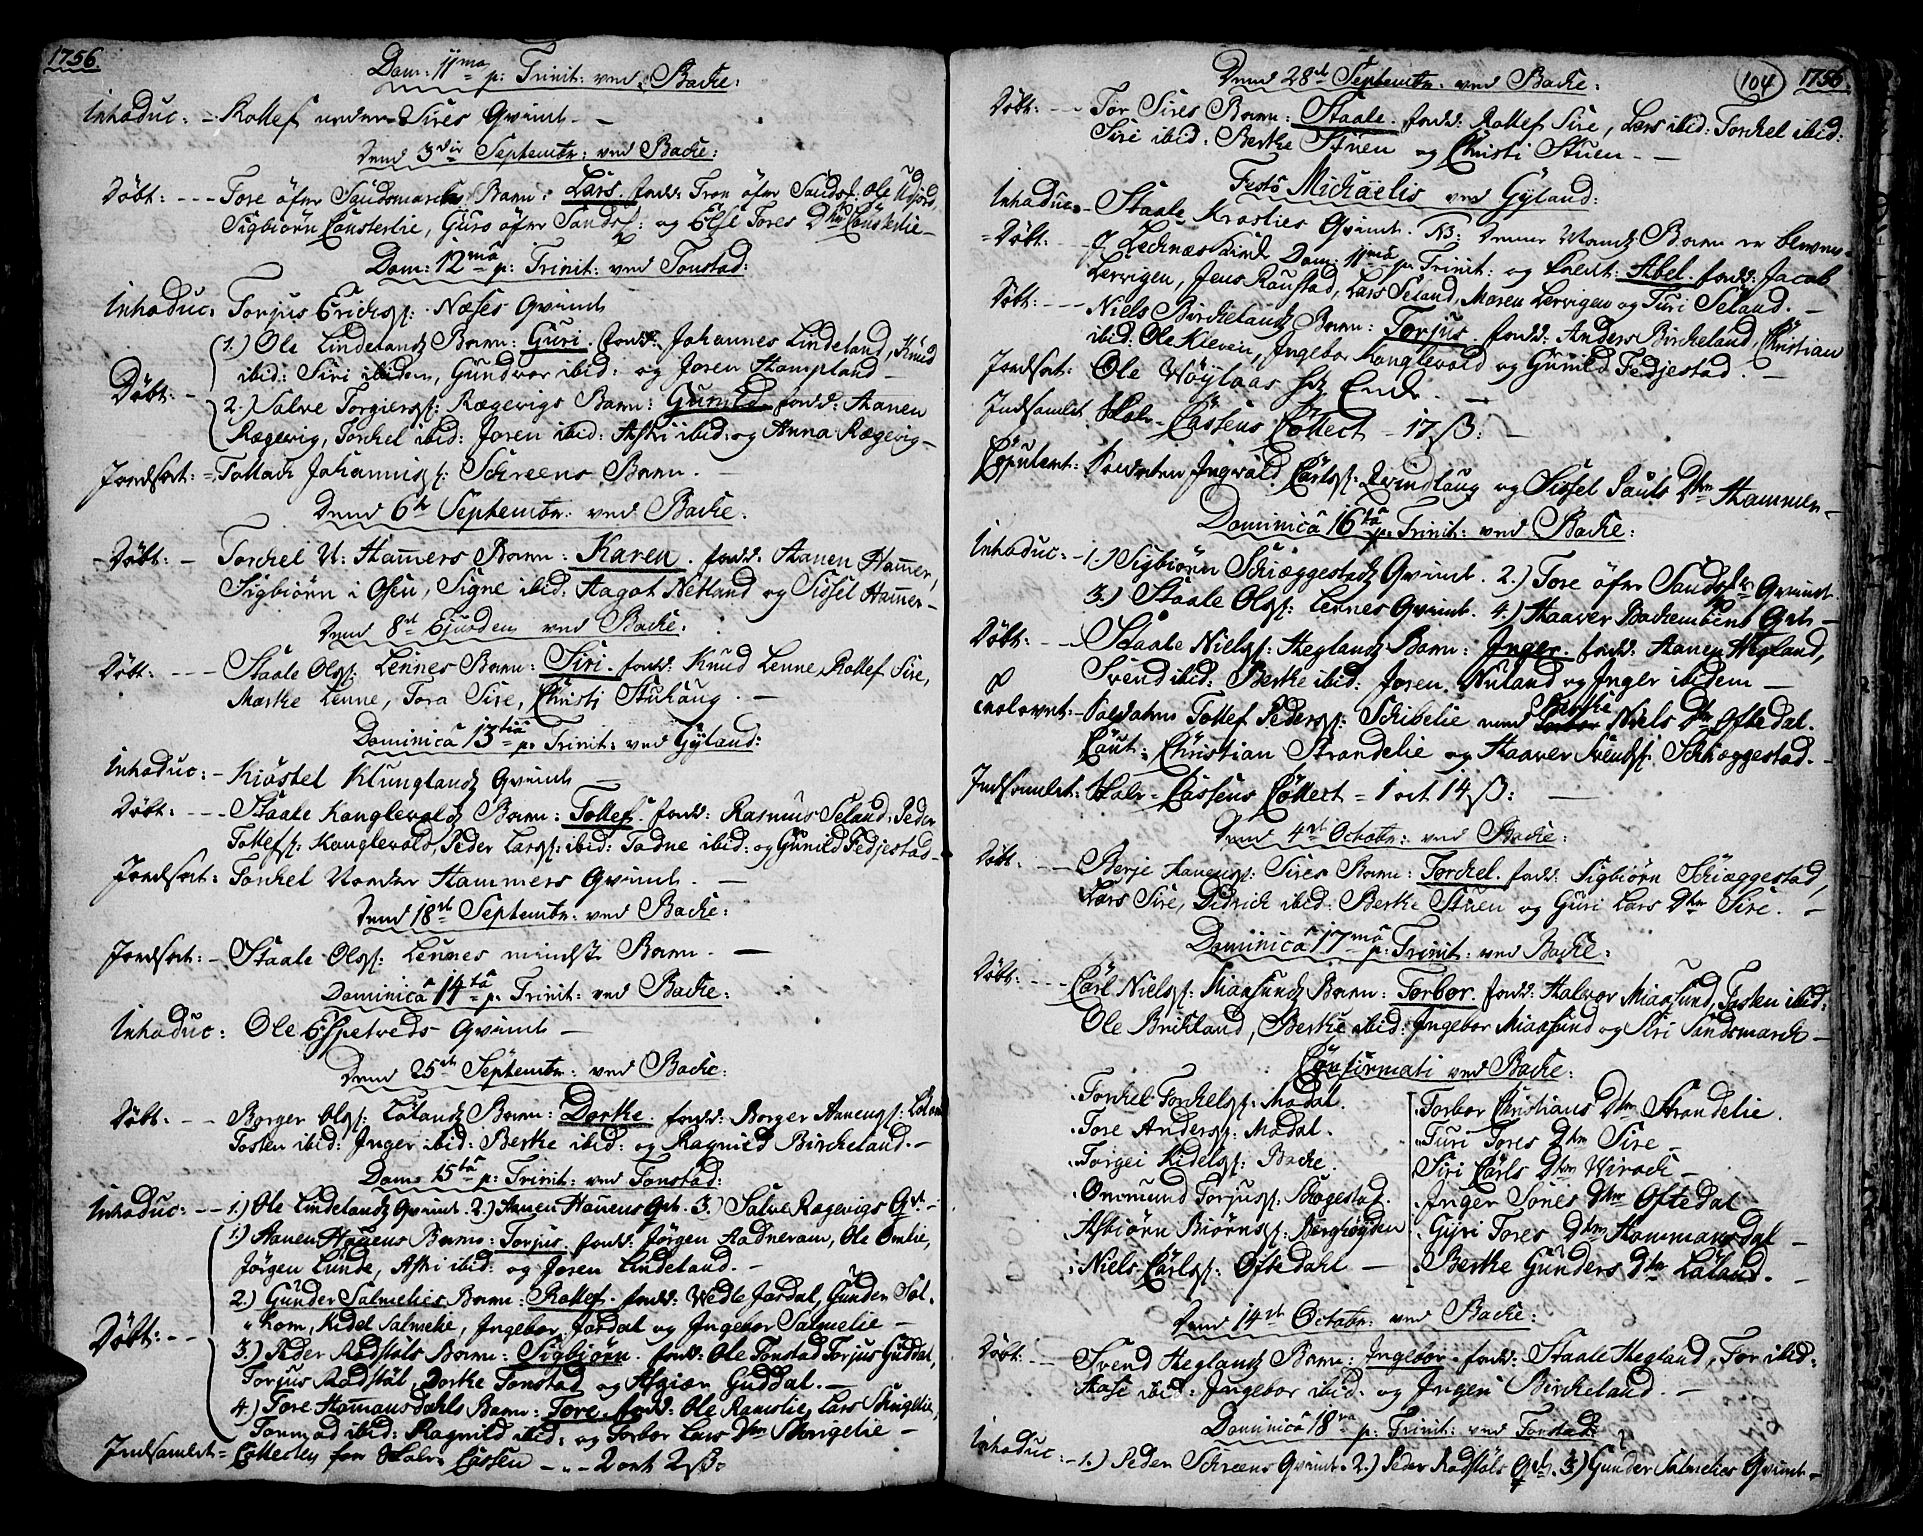 1756
Dom: 11ma p: Trinit: ved Backe:
Introduc: - Rollef nedre Sires Qvinde -
Dend 3die Septembr: ved Backe:
Döbt: --- Tore öfre Sandsmarks Barn: Lars. fadd: Tron öfre Sandsm: Ole Udjord,
Sigbiörn Lousterlie, Guro öfre Sandsm: og Else Tores Dtr Lousterlie -
Dom: 12ma p: Trinit: ved Tonstad:
Introduc: Torjus Erichss: Næses Qvinde
1.) Ole Lindelands Barn: Guri. fadd: Johannes Lindeland, Knud
ibid: Siri ibidem, Gundvor ibid: og Joren Hampland -
Döbt: -
2.) Salve Torgiers: Rægevigs Barn: Gunild. fadd: Hanen
Rægevig, Torkel ibid: Joren ibid: Astri ibid: og Anna Rægevig -
Jordfæst: = Tollach Johanniss: Schreens Barn. -
Dend 6te Septembr: ved Backe.
Döbt: - Torchel N: Hamers Barn: Karen. fadd: Hanen Hamer,
Sigbiörn i Osen, Signe ibid: Aagot Netland og Sissel Hamer -
Dend 8de Ejusdem ved Backe:
Döbt: --- Staale Olss: Lennes Barn: Siri. fadd: Knud Lenne, Rollef Sire,
Marthe Lenne, Tora Sire, Christi Stuhaug. -
Dominica 13tia p: Trinit: ved Gyland:
Introduc: - Kiöstel Klunglands Qvinde -
Döbt: --- Staale Kanglevolds Barn: Tollef. fadd: Rasmus Seland, Peder
Tollefs: Kanglevold, Peder Larss: ibid: Tadne ibid: og Gunild Fedjestad -
Jordfæst: Torkel Nordre Hammers Qvinde. -
Dend 18de Septembr: ved Backe:
Jordfæst: - Staale Olss: Lennes mindste Barn. -
Dominica 14ta p: Trinit: ved Backe:
Introduc: Ole Espetveds Qvinde -
Dend 25de Septembr: ved Backe:
Döbt: -- Börger Olss: Lölands Barn: Dorthe. fadd: Börger Hanens: Löland
Tosten ibid: Inger ibid: Berthe ibid: og Ragnild Birckeland. -
Dom: 15ta p: Trinit: ved Tonstad:
Introduc: -- 1.) Ole Lindelands Qvinde. 2.) Hanen Houens Qvt. 3.) Salve Rægevigs Qvt -
1.) Hanen Houens Barn: Torjus. fadd: Jörgen Aadneram, Ole Omlie,
Jörgen Lunde, Astri ibid: og Joren Lindeland. -
2.) Gunder Salmelies Barn: Rollef. fadd: Wedle Jördal, Gunder Sol-
hom, Kidel Salmelie, Ingebor Jördal og Ingebor Salmelie -
Döbt: --
3.) Peder Rödstöls Barn: Sigbiörn. fadd: Ole Tonstad, Torjus Guddal,
Torjus Rödstöl, Dorthe Tonstad og Asgiær Guddal. -
4.) Tore Homansdahls Barn: Tore. fadd: Ole Ramslie, Lars Skregelie,
Tormod ibid: Ragnild ibid: og Torbor Lars Dtr Skregelie -
Indsamlet = Collecten for Skole Cassen - - 2 ort 2 ß:
104
1756
Dend 28de Septembr: ved Backe:
Döbt: -- Tor Sires Barn: Staale. fadd: Rollef Sire, Lars ibid: Torkel ibid:
Siri ibid: Berthe Stuen og Christi Stuen - -
Festo Michaelis ved Gyland:
Introduc: - Staale Kroslies Qvinde. NB: denne Mands Barn er bleven
= Döbt: -- i Lechnæs Kirke Dom: 11ma p: Trinit: og kaldt: Abel. fadd: Jacob
Lervigen, Jens Röustad, Lars Seland, Maren Lervigen og Turi Seland. -
Döbt: --- Niels Birckelands Barn: Torjus. fadd: Anders Birckeland, Christian
ibid: Ole Kleven, Ingebor Kanglevold og Gunild Fedjestad. -
Jordfæst: Ole Höylaas -
Indsamlet Skole-Cassens Collect - 17 ß: -
Copuleret: Soldaten Ingvald Carls: Qvindlaug og Sissel Pauls Dtr Hammer -
Dominica 16ta p: Trinit: ved Backe:
Introduc: - 1.) Sigbiörn Schiæggestads Qvinde. 2.) Tore öfre Sandsm: Qvinde.
3.) Staale Olss: Lennes Qvinde. 4.) Haaver Backens Qvt -
Döbt: --- Staale Niels: Heglands Barn: Inger. fadd: Hanen Hegland,
Svend ibid: Berthe ibid: Joren Nuland og Inger ibidem -
Trolovet: - Soldaten Tollef Peders: Schibelie med Berthe Niels Dtr Oftedal.
Caut: Christian Strandelie og Haaver Svends: Schiæggestad. -
Indsamlet: Skole-Cassens Collect = 1 ort 14 ß: -
Dend 4de Octobr: ved Backe:
Döbt: --- Berje Hanens: Sires Barn: Torchel. fadd: Sigbiörn Schiæggestad,
Lars Sire, Didrich ibid: Berthe Stuen og Guri Lars Dtr Sire. -
Dominica 17ma p: Trinit: ved Backe:
Döbt: ---- Carl Niels: Miaasunds Barn: Torbor. fadd: Halvor Miaasund, Tosten ibid:
Ole Brickland, Berthe ibid: Ingebor Miaasund og Siri Sandsmarck -
Confirmati ved Backe:
Torkel Torkels: Modal.
Tore Anders: Modal.
Torgei Kidels: Backe.
Ommund Torjus: Schegestad.
Asbiörn Biörns: Berghöyden
Niels Carls: Oftedahl -
Torbor Christians Dtr Strandelie.
Turi Tores Dtr Sire -
Siri Carls Dtr Virack -
Inger Tones Dtr Oftedal
Gyri Tores Dtr Hommansdal -
Berthe Gunders Dtr Löland. -
Dend 14de Octobr: ved Backe:
Döbt: -- Svend Heglands Barn: Ingebor. fadd: Staale Hegland, Tor ibid:
Aase ibid: Ingebor ibid: og Inger Birckeland. -
Dominica 18va p: Trinit: ved Tonstad:
Introduc: - 1.) Peder Schreens Qvinde. 2.) Peder Rödstöls Qvt. 3.) Gunder Salmelies Qvinde -